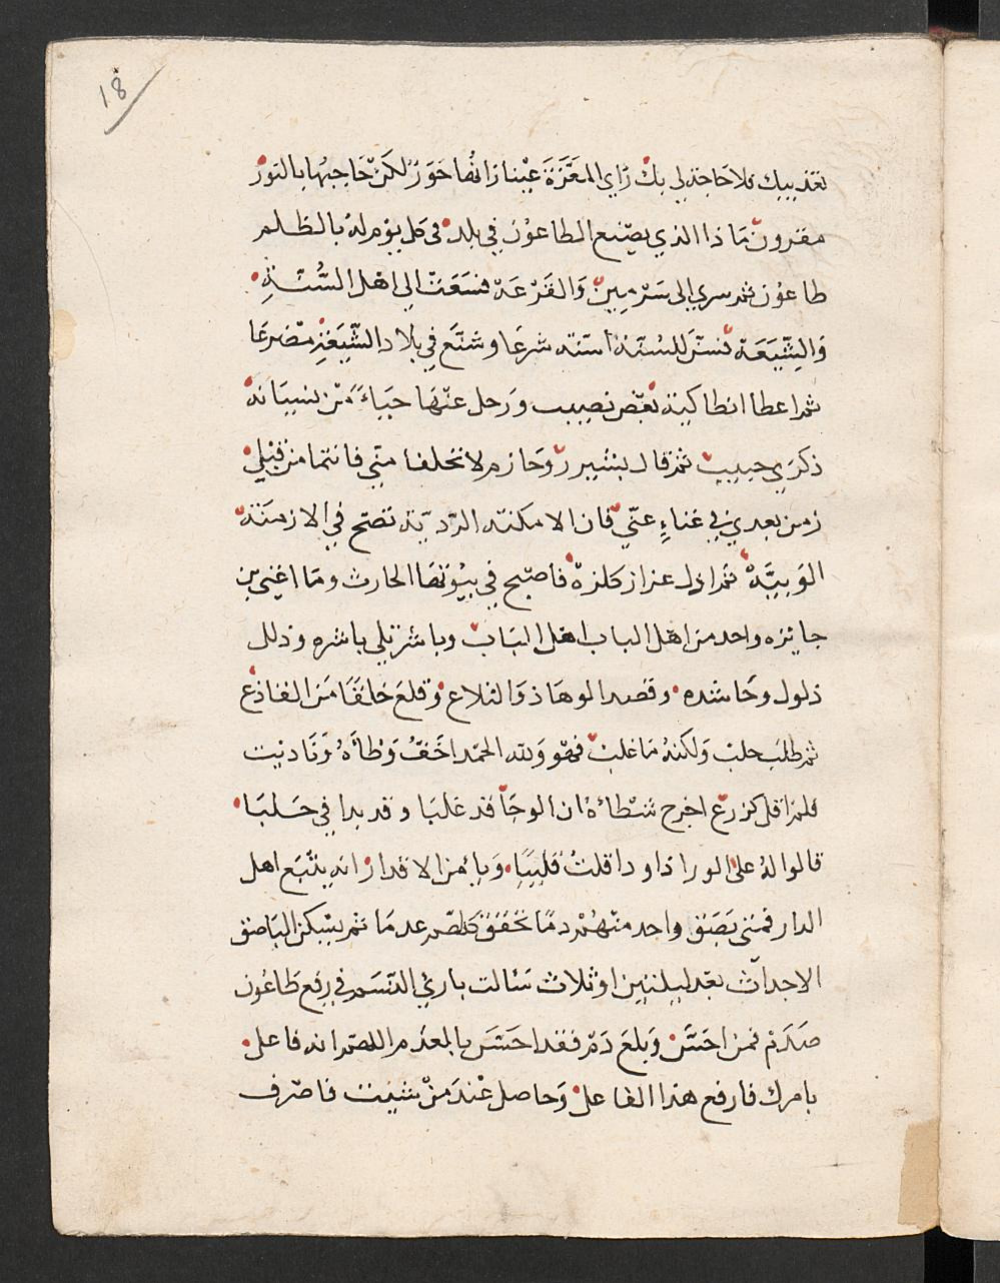 18
تعذيبك فلا حاجة لي بك رأي المعرة عينا زانها حور لكن حاجبها بالجور
مقرون ماذا الذي يصنع الطاعون في بلد في كل يوم له بالظلم
طاعون ثم سري الى سرمين والفوعة فشعث الى اهل السنة
والشيعة فسن للسنة اسنته شرعا وشيع في بلاد الشيعة مصرعا
ثم اعطا انطاكية بعض نصيب ورحل عنها حياء من نسيانه
ذكري حبيب ثم قال لشيزر وحازم لا تخافا مني فانتما من قبلي
ومن بعدي في غناء عني فان الامكنة الردية تصح في الازمنة
الوبية ثم اذل عزاز كلزة فاصبح في بيوتها الحارث وما اغنى بن
حلزه واحد من اهل الباب اهل الباب وباشر تلي باشره وذلل
ذلول وحاشده وقصد الوهاد والتلاع وقلع خلقا من القلاع
ثم طلب حلب ولكنه ما غلب فهو ولله الحمد اخف وطأة وناديت
فلم اقل كزرع اخرج شطأه ان الوبا قد غلبا وقد بدا في حلبا
قالوا له على الورا كاف ورا قلت وبا ومن الاقدار انه يتتبع اهل
الدار فمتى بصق واحد منهم دما تحققوا كلهم عدما ثم يسكن الباصق
الاجداث بعد ليلتين او ثلاث سالت باري النسم في رفع طاعون
صدم فمن احس وبلع دم فقد احس بالعدم اللهم انه فاعل
بامرك فارفع هذا الفاعل وحاصل عند من شيت فاصرف